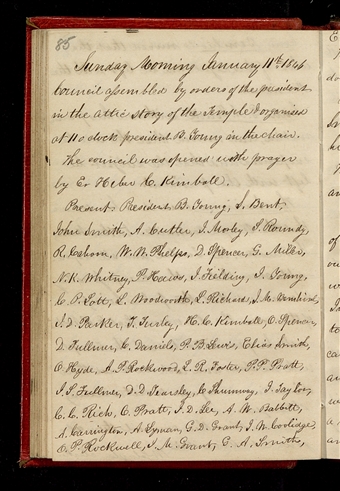 85
Sunday Morning January 11th 1846
Council assembled by orders of the president
in the attic story of the Temple & organised
at 11 o clock president B. Young in the chair.
The council was opened with prayer
by Er Heber C. Kimball.
Present. President B. Young, S. Bent,
John Smith, A. Cutler, I. Morley, S. Roundy,
R. Cahoon, W. W. Phelps, D. Spencer, G. Miller,
N. K. Whitney, P. Haws, J. Fielding, J. Young,
C. P. Lott, L. Woodworth, L. Richards, J. M. Bernhisel,
J. D. Parker, T. Turley, H. C. Kimball, O. Spencer,
D. Fullmer, C. Daniels, P. B. Lewis, Elias Smith,
O Hyde, A. P. Rockwood, L. R. Foster, P. P. Pratt,
J. S. Fullmer, D. D. Yearsley, C Shumway, J. Taylor,
C. C. Rich, O. Pratt, J. D. Lee, A. W. Babbitt,
A. Carrington, A. Lyman, G. D. Grant, J. W. Coolidge,
O. P. Rockwell, J. M. Grant, G. A. Smith,